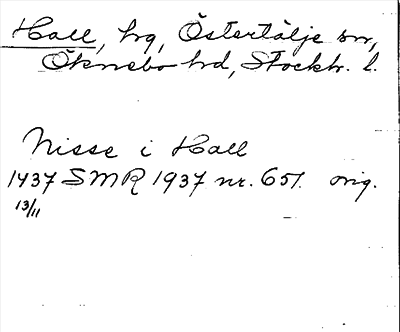 Hall, hg, Östertälje sn,
Öknebo hd, Stockh. l.
Nisse i Hall
1437 SMR 1937 nr. 651. orig.
13/11